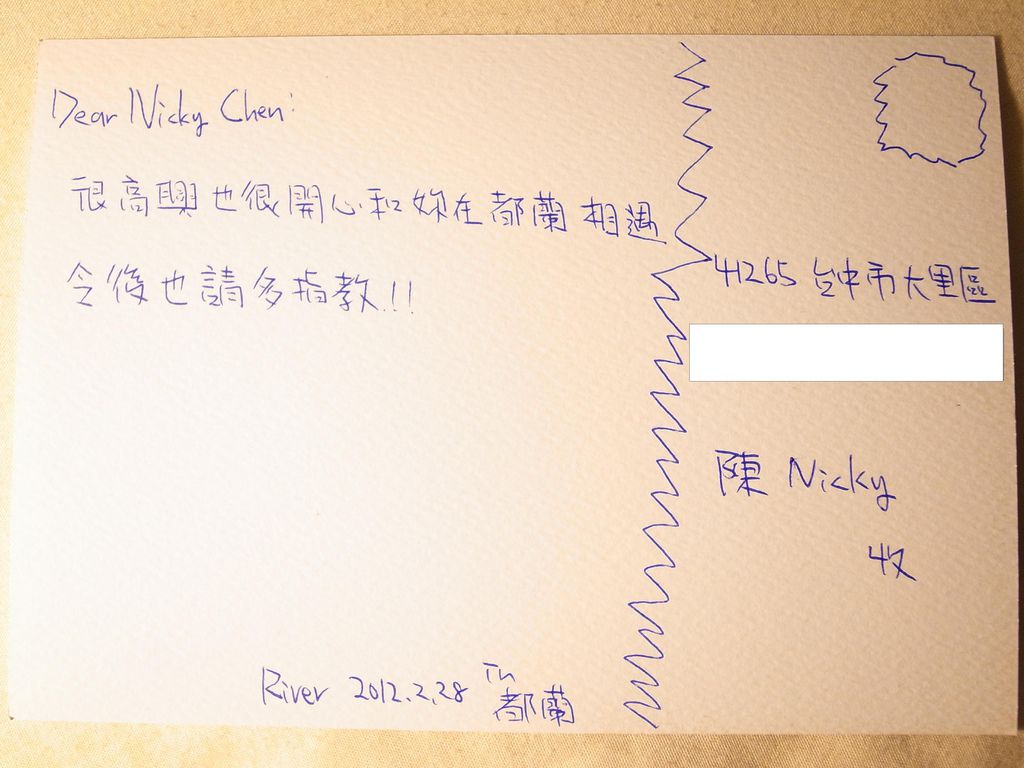 Dear Nicky Chen:
很高興也很開心和妳在都蘭相遇
今後也請多指教!!
River 2012.2.28 In 都蘭
41265 台中市大里區
陳 Nicky
收